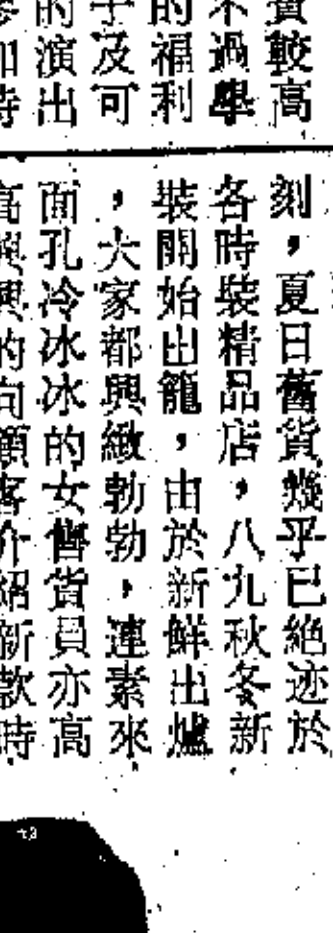 費較高
不過學
的福利
子及可
的演出
參加時
刻，夏日舊貨幾乎已絕迹於
各時裝精品店，八九秋冬新
裝開始出籠，由於新鮮出爐
，大家都興緻勃勃，連素來
面孔冷冰冰的女售貨員亦高
高興興的向顧客介紹新款時